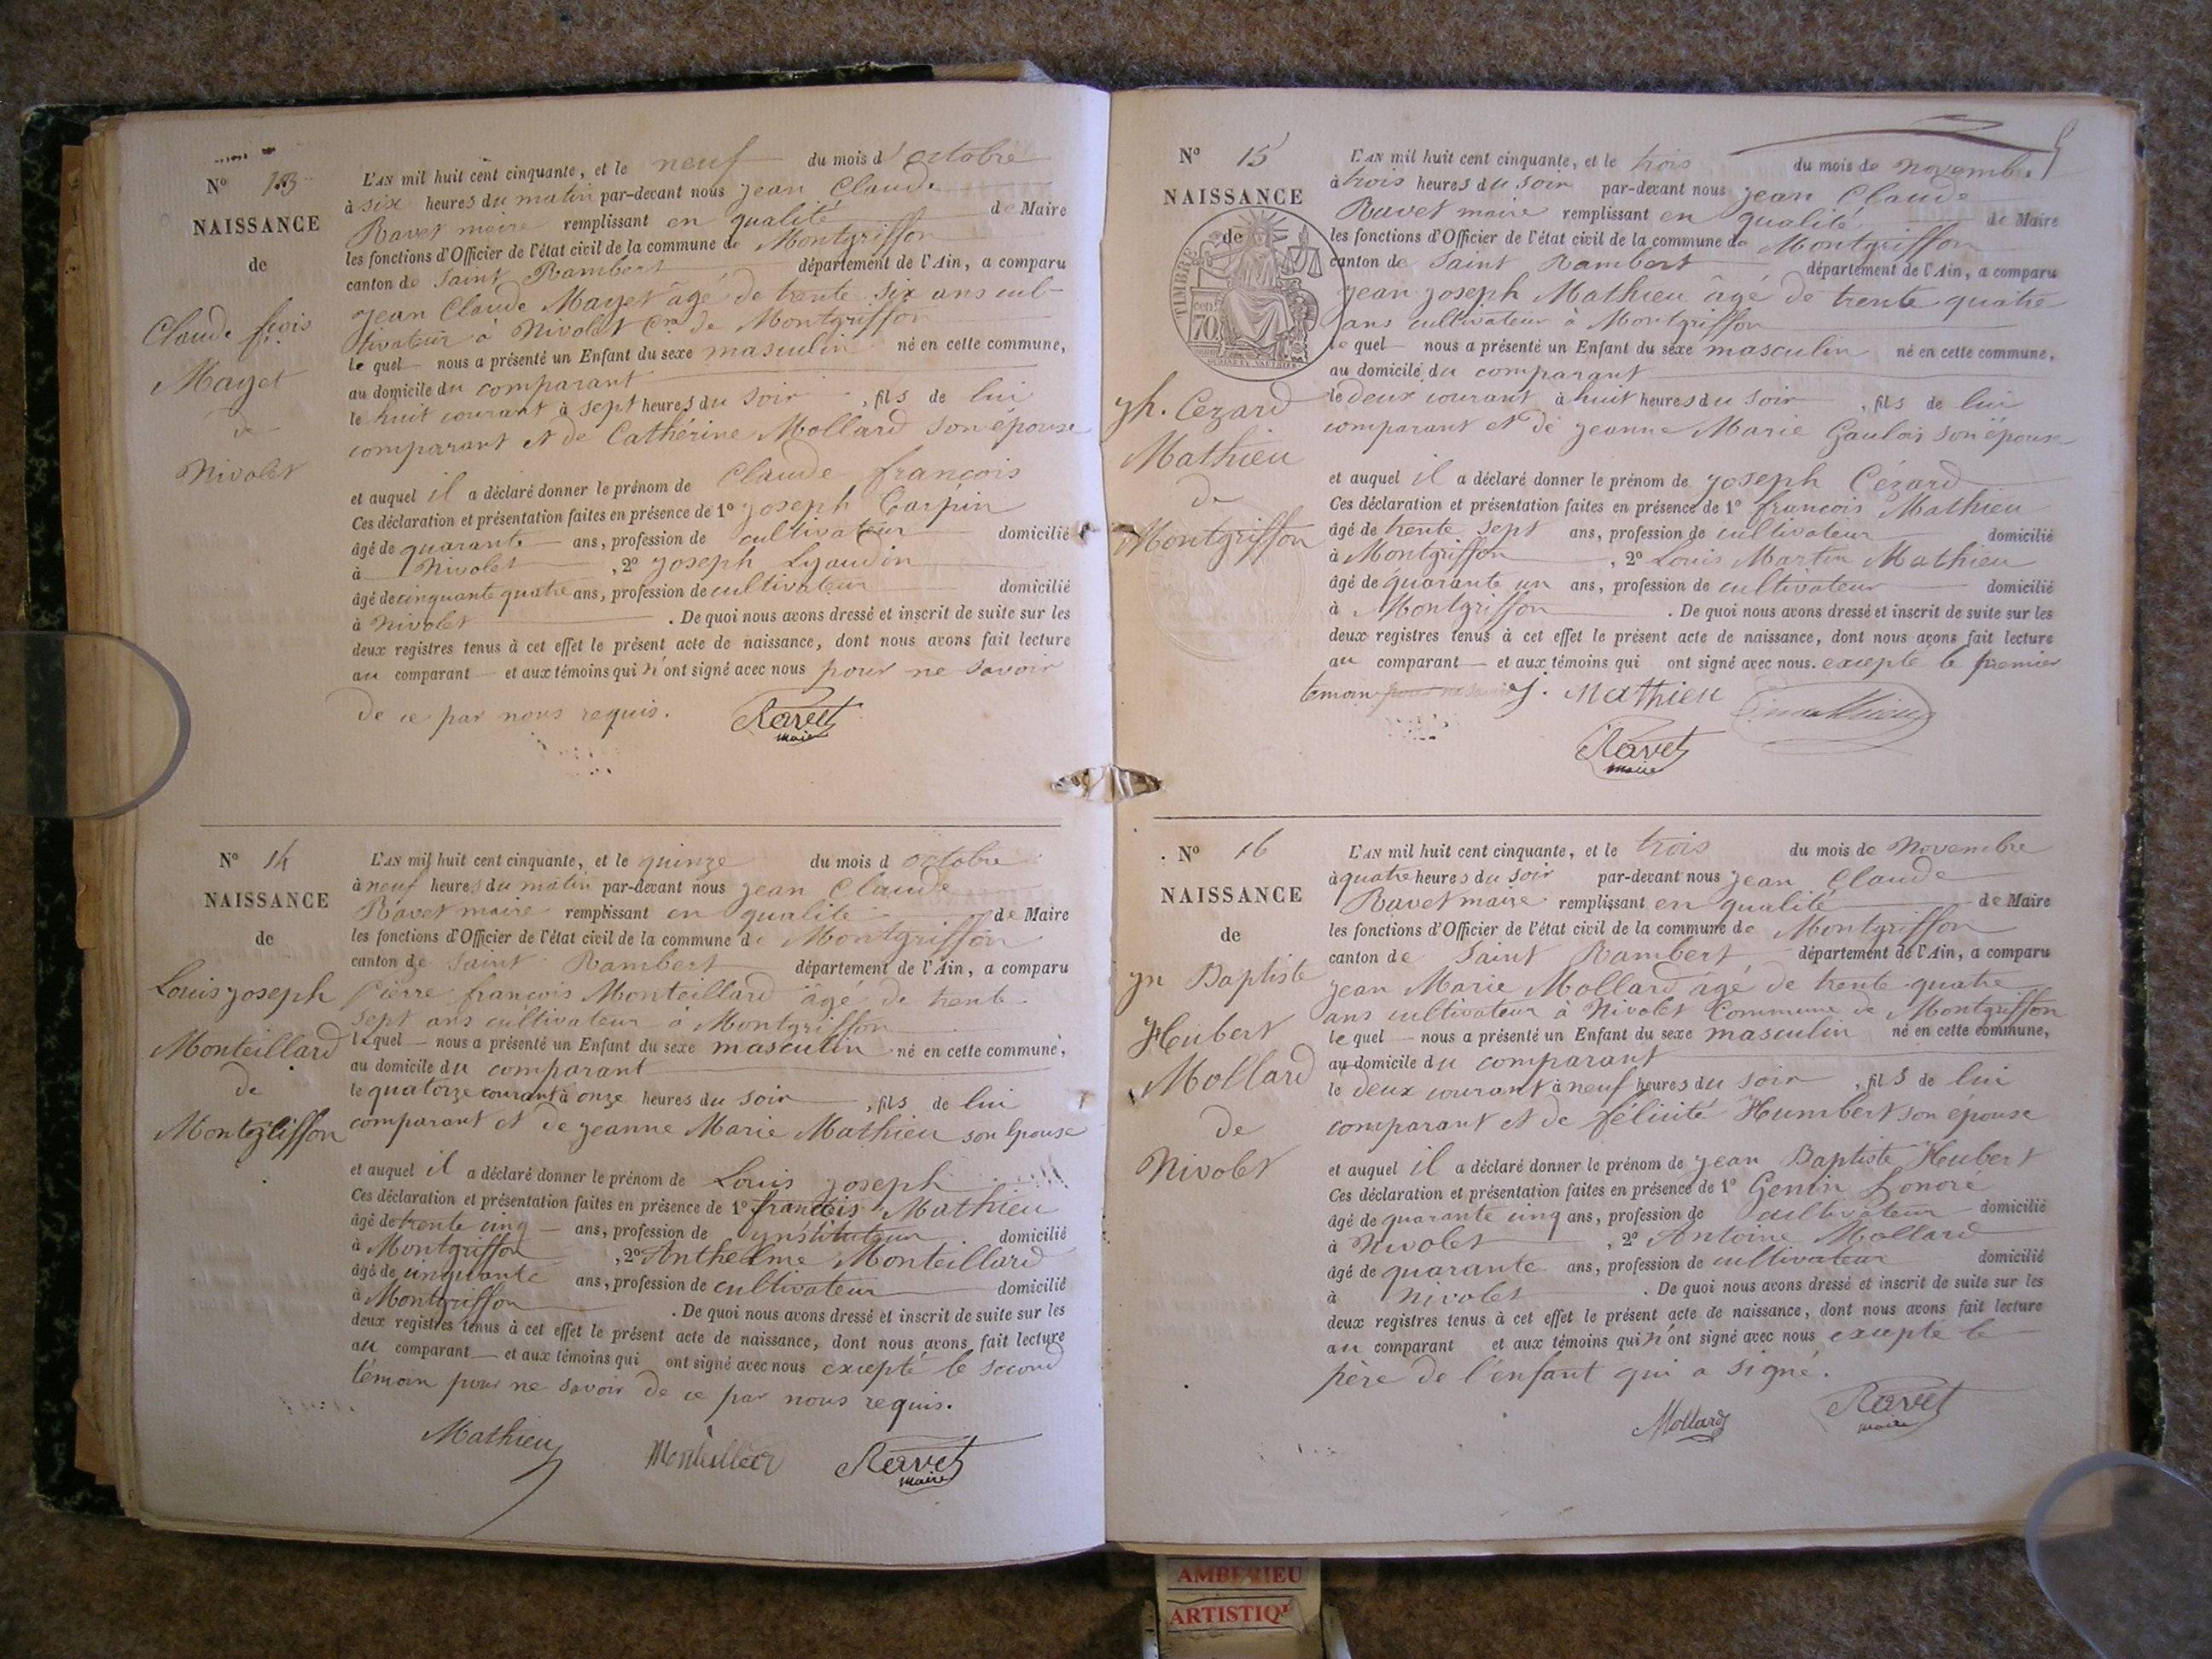 N° 13
NAISSANCE
de
Claude fçois
Mayet
de
Nivolet
L'AN mil huit cent cinquante, et le neuf du mois d'octobre
à six heures du matin par-devant nous jean Claude
Ravet maire remplissant en qualité de Maire
les fonctions d'Officier de l'état civil de la commune de Montgriffon
canton de Saint Rambert département de l'Ain, a comparu
jean Claude Mayet âgé de trente six ans cul-
tivateur à Nivolet Cne de Montgriffon
le quel nous a présenté un Enfant du sexe masculin né en cette commune,
au domicile du comparant
le huit courant à sept heures du soir, fils de lui
comparant et de Cathérine Mollard son épouse
et auquel il a déclaré donner le prénom de Claude françois
Ces déclaration et présentation faites en présence de 1° joseph Carpin
âgé de quarante ans, profession de cultivateur domicilié
à Nivolet, 2° joseph Lyaudin
âgé de cinquante quatre ans, profession de cultivateur domicilié
à Nivolet. De quoi nous avons dressé et inscrit de suite sur les
deux registres tenus à cet effet le présent acte de naissance, dont nous avons fait lecture
au comparant et aux témoins qui n'ont signé avec nous pour ne savoir
de ce par nous requis.
Ravet
maire
N° 14
NAISSANCE
de
Louis joseph
Monteillard
de
Montgliffon
L'AN mil huit cent cinquante, et le quinze du mois d octobre
à neuf heures du matin par-devant nous jean Claude
Ravet maire remplissant en qualité de Maire
les fonctions d'Officier de l'état civil de la commune de Montgriffon
canton de Saint Rambert département de l'Ain, a comparu
Pierre françois Monteillard âgé de trente
sept ans cultivateur à Montgriffon
lequel nous a présenté un Enfant du sexe masculin né en cette commune,
au domicile du comparant
le quatorze courant à onze heures du soir, fils de lui
comparant et de jeanne Marie Mathieu son épouse
et auquel il a déclaré donner le prénom de Louis joseph
Ces déclaration et présentation faites en présence de 1° françois Mathieu
âgé de trente cinq ans, profession de ynstituteur domicilié
à Montgriffon, 2° Anthelme Monteillard
âgé de cinquante ans, profession de cultivateur domicilié
à Montgriffon. De quoi nous avons dressé et inscrit de suite sur les
deux registres tenus à cet effet le présent acte de naissance, dont nous avons fait lecture
au comparant et aux témoins qui ont signé avec nous excepté le second
témoin pour ne savoir de ce par nous requis.
Mathieu Ravet
maire
N° 15
NAISSANCE
de
TIMBRE
70
jh. Cezard
Mathieu
de
Montgriffon
L'AN mil huit cent cinquante, et le trois du mois de novembre
à trois heures du soir par-devant nous jean Claude
Ravet maire remplissant en qualité de Maire
les fonctions d'Officier de l'état civil de la commune de Montgriffon
canton de Saint Rambert département de l'Ain, a comparu
jean joseph Mathieu âgé de trente quatre
ans cultivateur à Montgriffon
le quel nous a présenté un Enfant du sexe masculin né en cette commune,
au domicile du comparant
le deux courant à huit heures du soir, fils de lui
comparant et de jeanne Marie Gaulois son épouse
et auquel il a déclaré donner le prénom de joseph Cézard
Ces déclaration et présentation faites en présence de 1° françois Mathieu
âgé de trente sept ans, profession de cultivateur domicilié
à Montgriffon, 2° Louis Martin Mathieu
âgé de quarante un ans, profession de cultivateur domicilié
à Montgriffon. De quoi nous avons dressé et inscrit de suite sur les
deux registres tenus à cet effet le présent acte de naissance, dont nous avons fait lecture
au comparant et aux témoins qui ont signé avec nous. excepté le premier
témoin J. Mathieu
Ravet
maire
N° 16
NAISSANCE
de
jn Baptiste
Hubert
Mollard
de
Nivolet
L'AN mil huit cent cinquante, et le trois du mois de Novembre
à quatre heures du soir par-devant nous jean Claude
Ravet maire remplissant en qualité de Maire
les fonctions d'Officier de l'état civil de la commune de Montgriffon
canton de Saint Rambert département de l'Ain, a comparu
jean Marie Mollard âgé de trente quatre
ans cultivateur à Nivolet Commune de Montgriffon
le quel nous a présenté un Enfant du sexe masculin né en cette commune,
au domicile du comparant
le deux courant à neuf heures du soir, fils de lui
comparant et de félicité Humbert son épouse
et auquel il a déclaré donner le prénom de jean Baptiste Hubert
Ces déclaration et présentation faites en présence de 1° Genin honoré
âgé de quarante cinq ans, profession de cultivateur domicilié
à Nivolet, 2° Antoine Mollard
âgé de quarante ans, profession de cultivateur domicilié
à Nivolet. De quoi nous avons dressé et inscrit de suite sur les
deux registres tenus à cet effet le présent acte de naissance, dont nous avons fait lecture
au comparant et aux témoins qui n'ont signé avec nous excepté le
père de l'enfant qui a signé.
Mollard Ravet
maire
AMBERIEU
ARTISTIQ